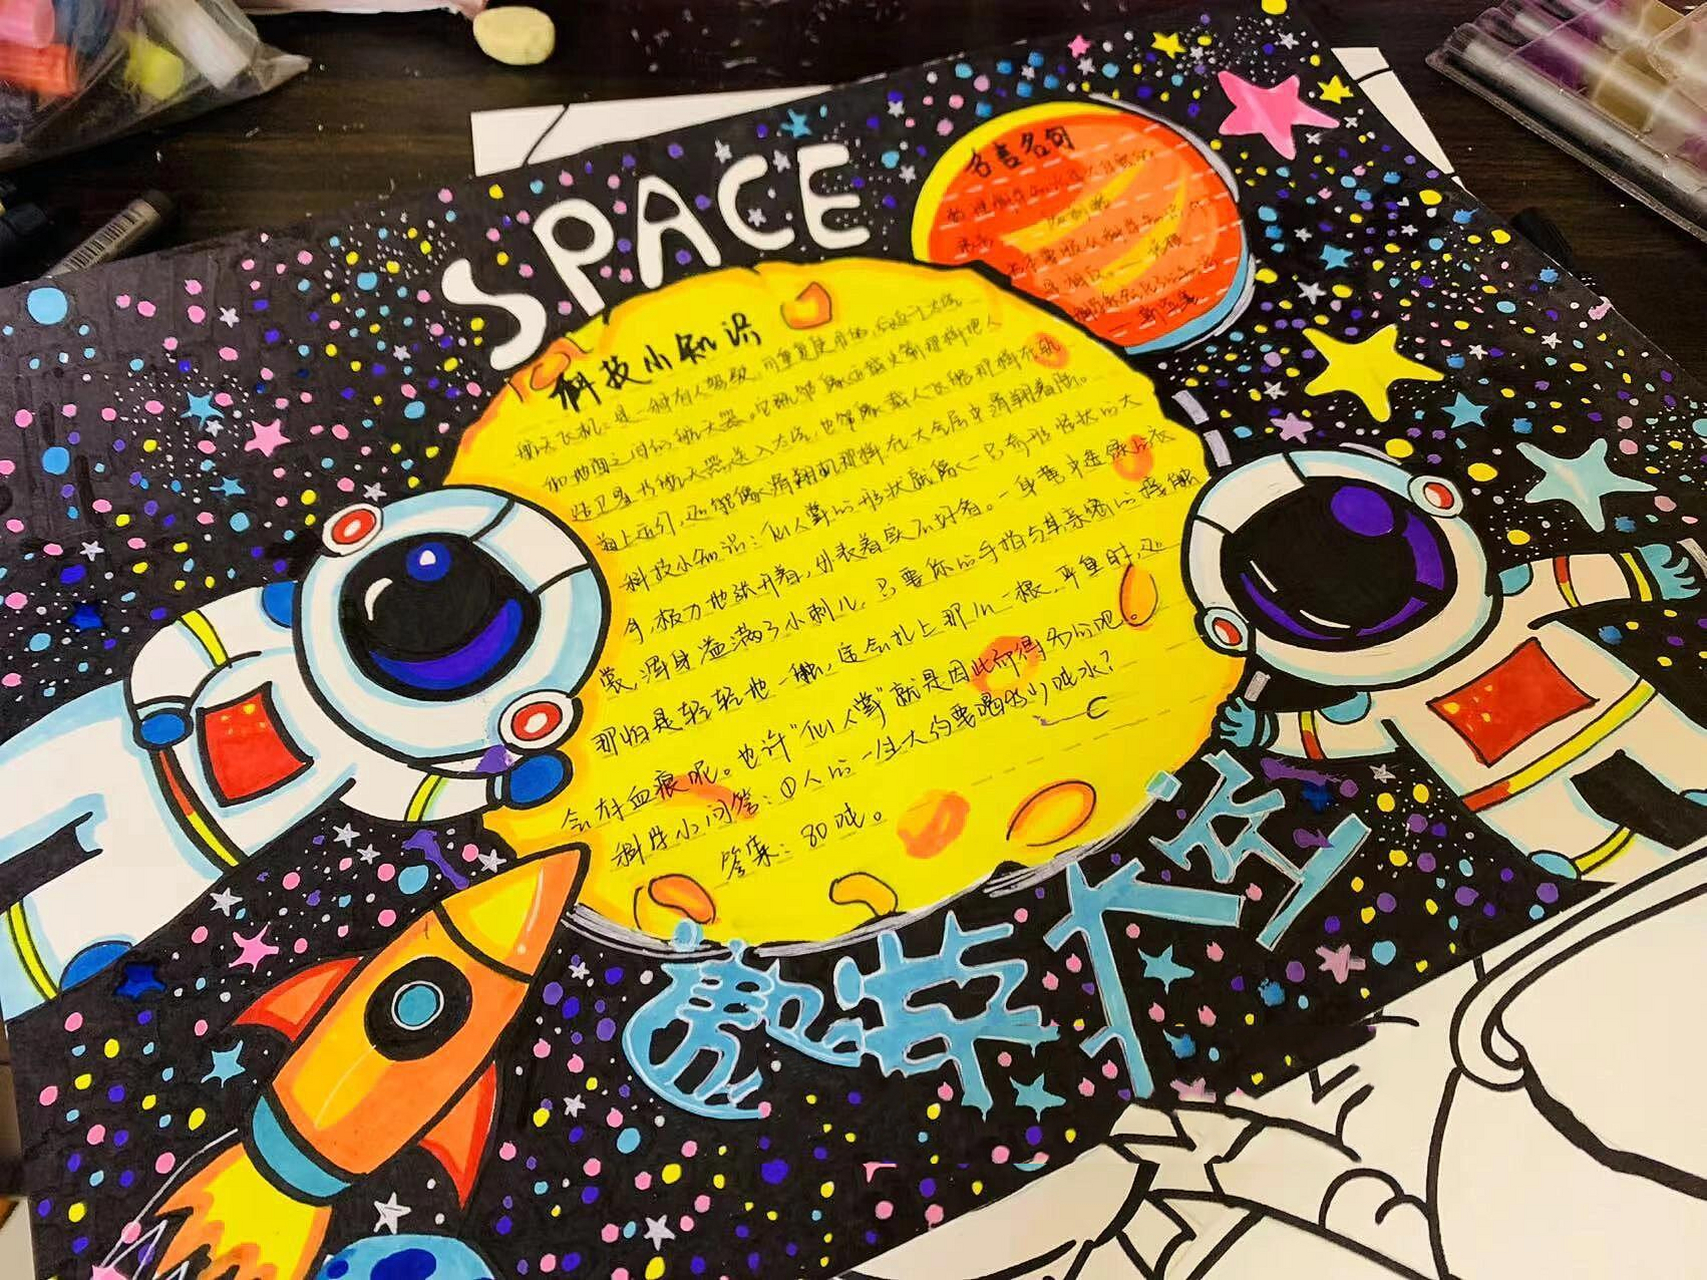 SPACE
名言名句
科技小知识
航天飞机:是一种有人驾驶、可重复使用的、往返于太空
和地面之间的航天器。它既能像运载火箭那样把人
造卫星等航天器送入太空,也能像载人飞船那样在轨
道上运行,还能像滑翔机那样在大气层中滑翔着陆。
科技小知识:仙人掌的形状就像一只奇形怪状的大
手,极力地张开着,外表看款不好看。一身黄中透绿的衣
裳,浑身溢满了小刺儿,只要你的手指与其亲密的接触
那怕是轻轻地一触,这会扎上那似一根,严重时,还
会有血痕呢。也许“仙人掌”就是因此而得名的吧。
科学小问答:①人的一生大约要喝多少吨水?
答案:80吨。
遨游太空